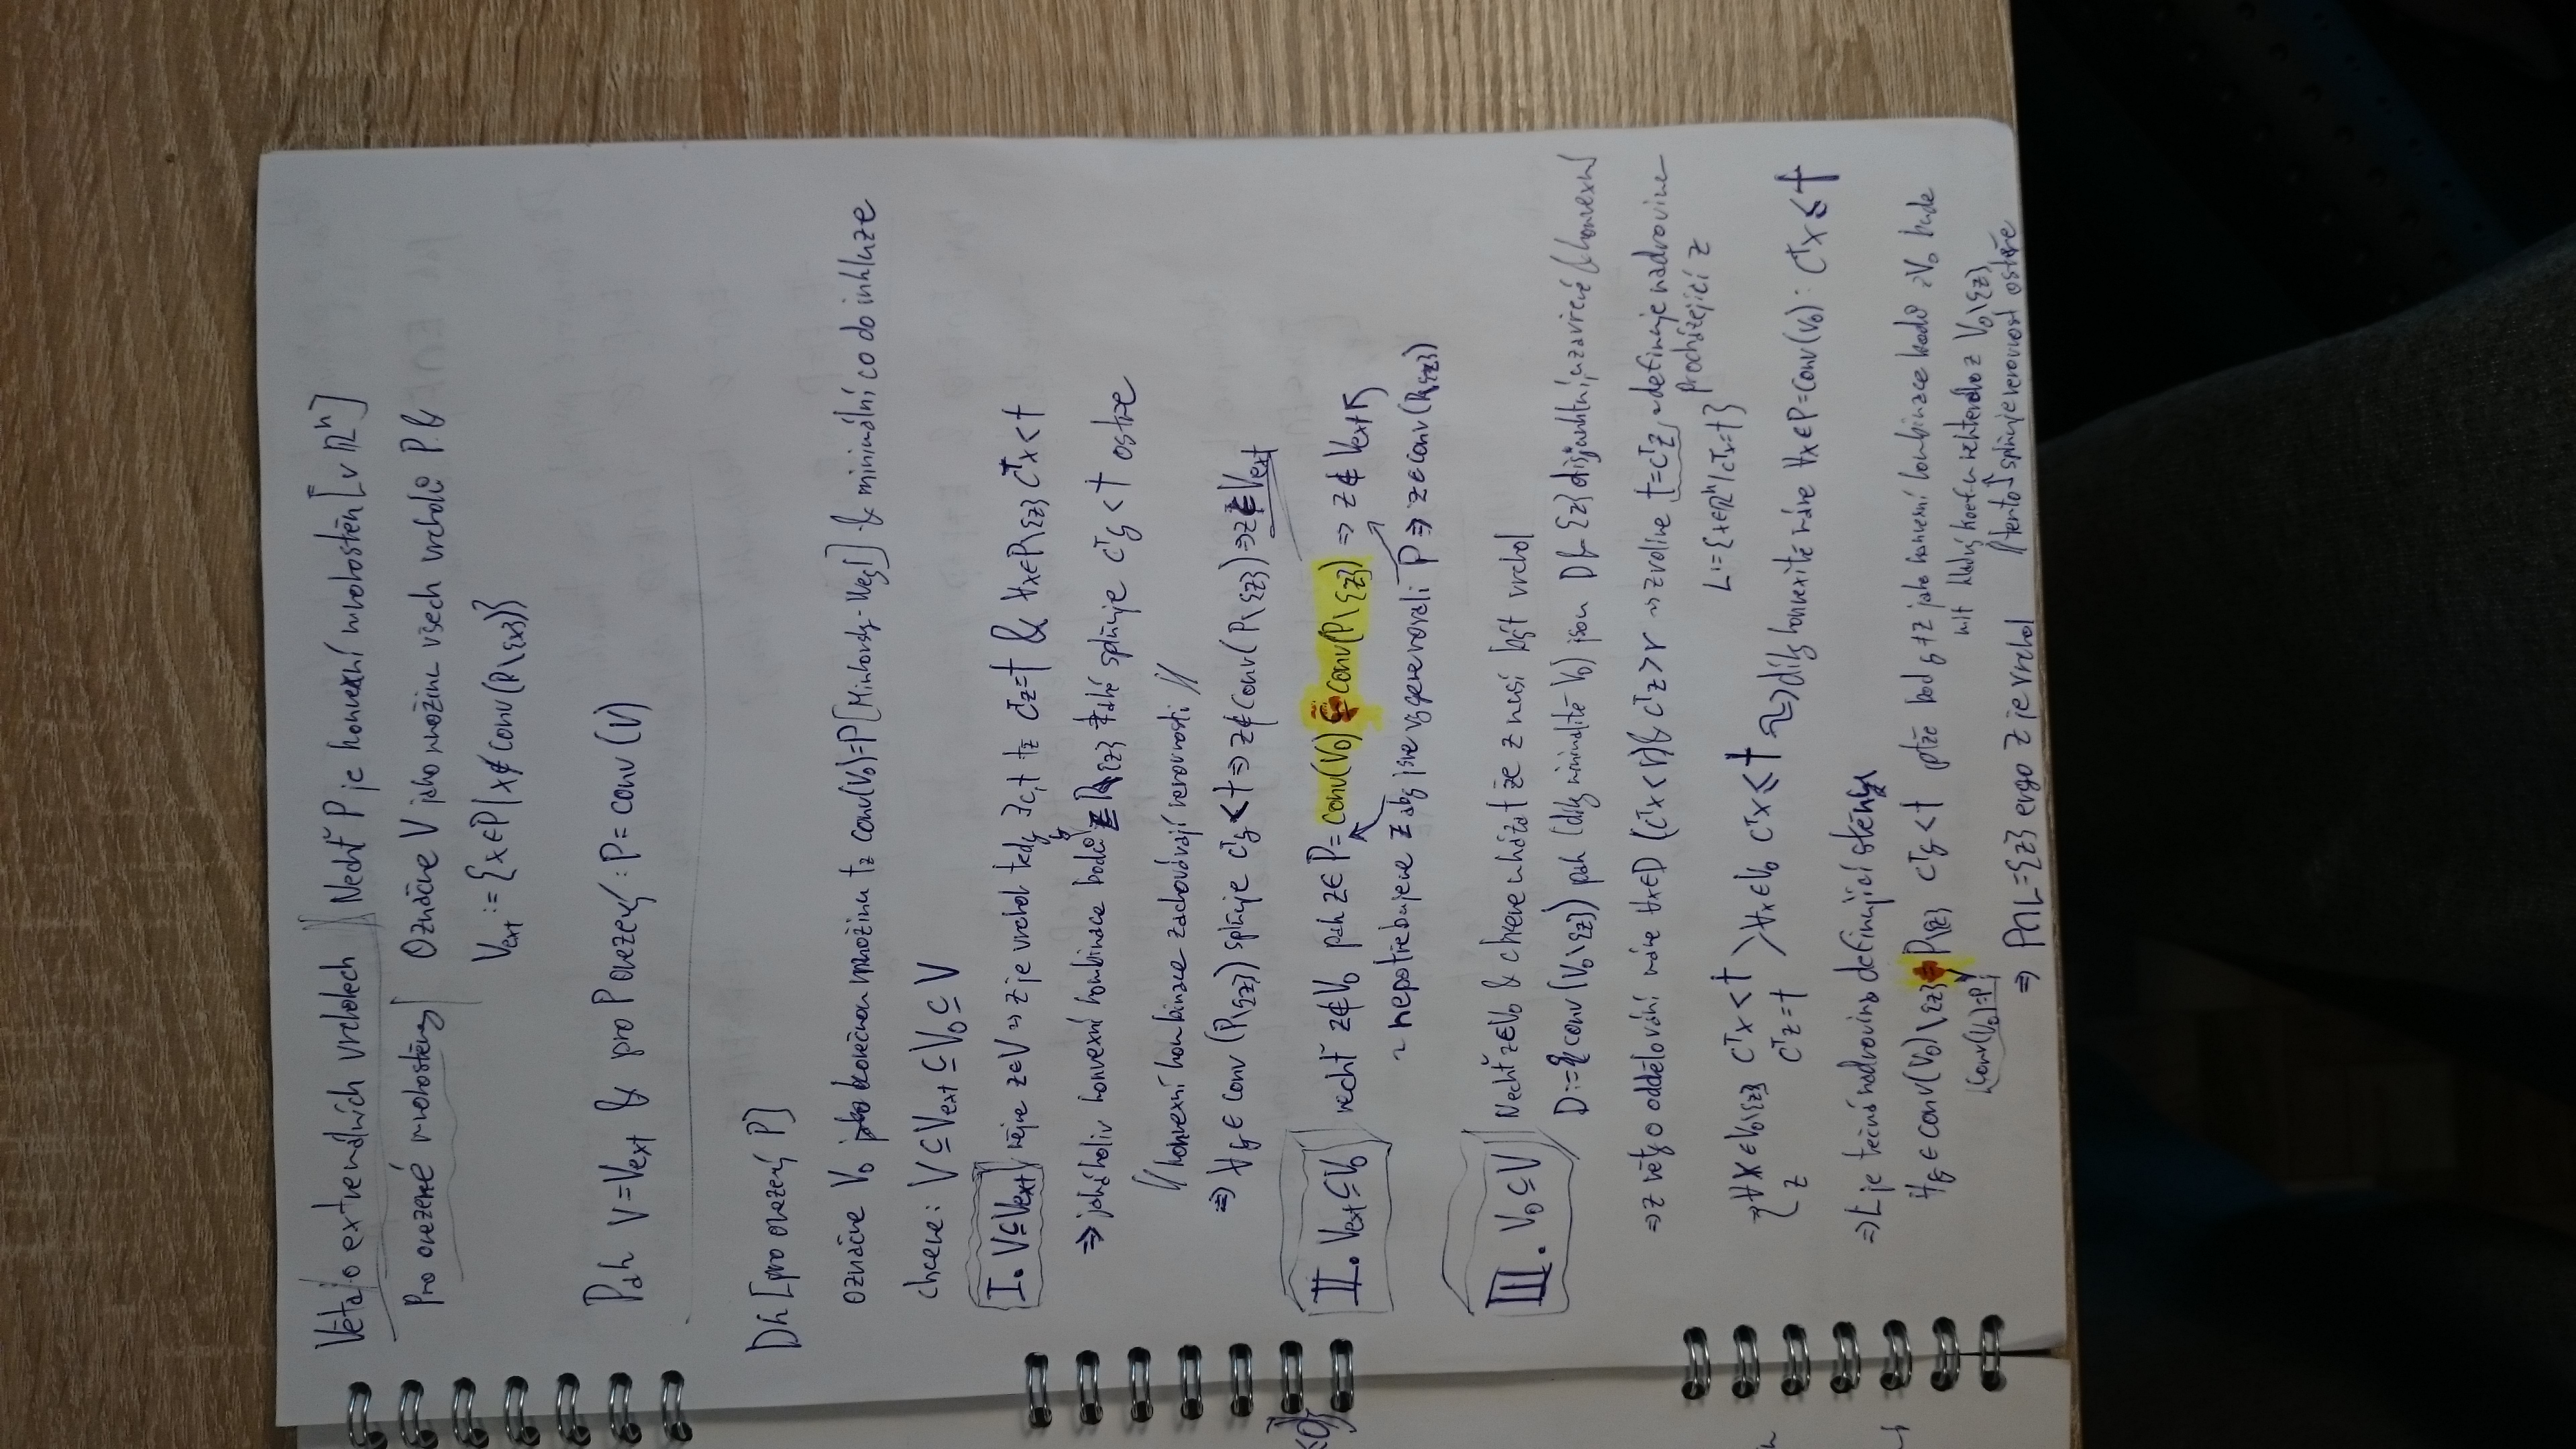 Věta/o extremálních vrcholech Nechť P je konvexní mnohostěn [v ℝⁿ]
Pro omezené mnohostěny Označme V jeho množinu všech vrcholů P &
V_ext := {x∈P | x∉conv(P\{x})}
Pak V=V_ext & pro P omezený: P=conv(V)
Dk [pro omezený P]
označme V₀ konečnou množinu tz conv(V₀)=P [Minkowsky-Weyl] & minimální co do inkluze
chceme: V⊆V_ext⊆V₀⊆V
I. V⊆V_ext mějme z∈V → z je vrchol tedy ∃c,t tz cᵀz=t & ∀x∈P\{z} cᵀx<t
⇒ jakákoliv konvexní kombinace bodů z P\{z} také splňuje cᵀy<t ostře
// konvexní kombinace zachovávají nerovnosti //
⇒ ∀y∈conv(P\{z}) splňuje cᵀy<t ⇒ z∉conv(P\{z}) ⇒ z∈V_ext
II. V_ext⊆V₀ nechť z∉V₀ pak z∈P=conv(V₀)⊆conv(P\{z}) ⇒ z∉V_ext
~ nepotřebujeme z aby jsme vygenerovali P ⇒ z∈conv(P\{z})
III. V₀⊆V Nechť z∈V₀ & chceme ukázat že z musí být vrchol
D:=conv(V₀\{z}) pak (díky minimalitě V₀) jsou D & {z} disjunktní, uzavřené & konvexní
⇒ z věty o oddělování máme ∀x∈D (cᵀx<r) & cᵀz>r → zvolme t=cᵀz, ~ definuje nadrovinu
L:={x∈ℝⁿ | cᵀx=t} procházející z
{∀x∈V₀\{z} cᵀx<t
z cᵀz=t
∀x∈V₀ cᵀx≤t ⇒ díky konvexitě máme ∀x∈P=conv(V₀): cᵀx≤t
⇒ L je tečná nadrovina definující stěnu
∀y∈conv(V₀)\{z}=P\{z} cᵀy<t ptže bod y≠z jako konvexní kombinace bodů z V₀ bude
conv(V₀)=P
mít kladný koef. u některého z V₀\{z}
// tento splňuje nerovnost ostře
⇒ P∩L={z} ergo z je vrchol